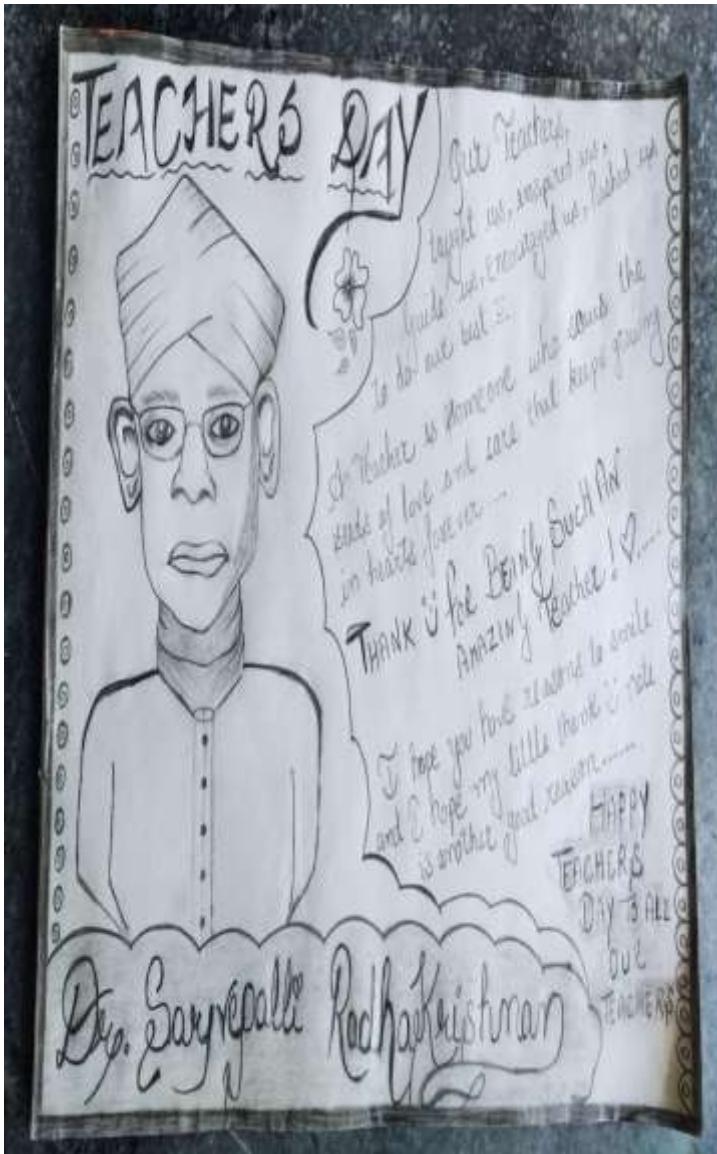 TEACHERS DAY
Our Teachers,
taught us, inspired us,
Guide us, encouraged us, Pushed us
to do our best
A Teacher is someone who sows the
seeds of love and care that keeps growing
in hearts forever....
THANK Ü for BEANG SUCH AN
AMAZING TEACHER! ♡.....
I hope you have reasons to smile
and I hope my little thank Ü note
is another good reason......
HAPPY
TEACHERS
DAY TO ALL
OUR
TEACHERS
Dr. Sarvepalli RadhaKrishnan